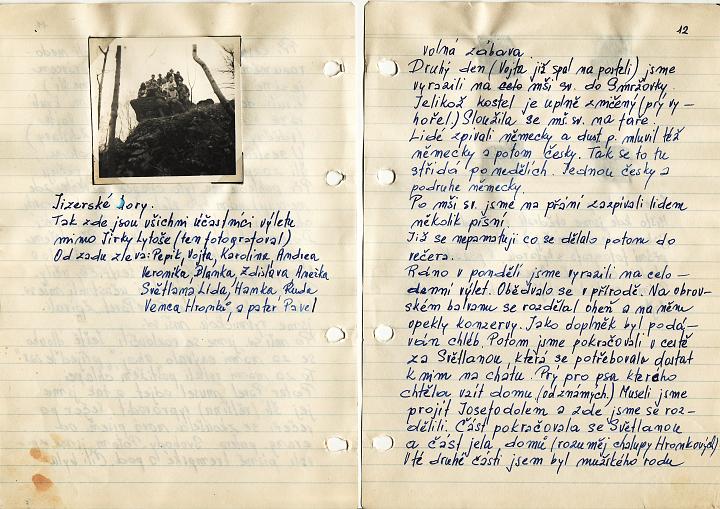 Jizerské hory.
Tak zde jsou všichni účastníci výletu
mimo Jirky Lytoše (ten fotografoval)
Od zadu zleva: Pepik, Vojta, Karolina, Andrea
Veronika, Blanka, Zdislava Anežka
Světlana, Lída, Hanka Ruda
Venca Hronků, a pater Pavel
12
volná zábava
Druhý den (Vojta již spal na posteli) jsme
vyrazili na celo mši sv. do Smržovky.
Jelikož kostel je uplně zničený (prý vy-
hořel.) Sloužila se mš. sv. na faře.
Lidé zpívali německy a dust p. mluvil též
německy a potom česky. Tak se to tu
střídá po nedělích. Jednou česky a
podruhe německy.
Po mši sv. jsme na přání zazpívali lidem
několik písní.
Již se nepamatuji co se dělalo potom do
večera.
Ráno v pondělí jsme vyrazili na celo-
denní výlet. Obědvalo se v přírodě. Na obrov-
ském balvanu se rozdělal oheň a na něm
opekly konzervy. Jako doplněk byl podá-
ván chléb. Potom jsme pokračovali v cestě
za Světlanou, která se potřebovala dostat
k nim na chatu. Prý pro psa kterého
chtěla vzít domu (od známých) Museli jsme
projít Josefodolem a zde jsme se roz-
dělili. Část pokračovala se Světlanou
a část jela domů (rozuměj chalupy Hronkových)
V té druhé části jsem byl mužského rodu